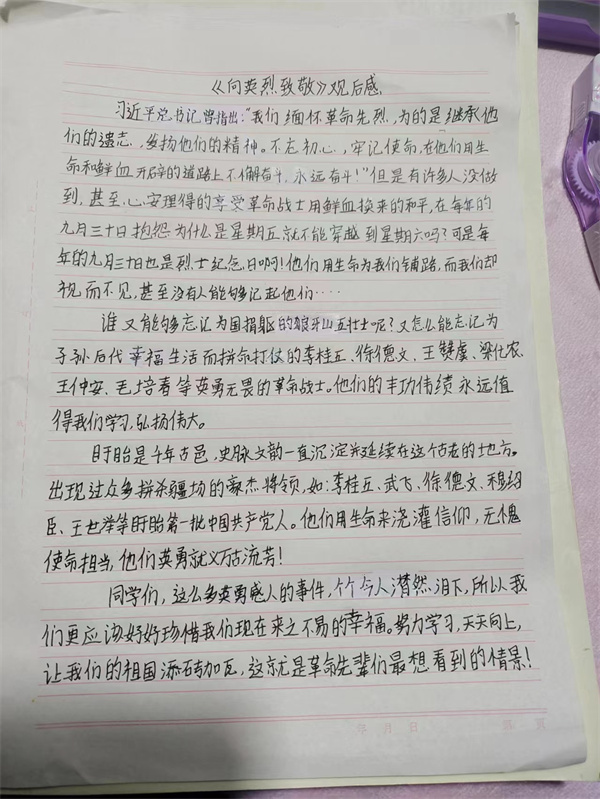 《向英烈致敬》观后感
习近平总书记曾指出:"我们缅怀革命先烈,为的是继承他
们的遗志,发扬他们的精神。不忘初心,牢记使命,在他们用生
命和鲜血开辟的道路上不懈奋斗,永远奋斗!"但是有许多人没做
到,甚至心安理得的享受革命战士用鲜血换来的和平,在每年的
九月三十日抱怨为什么是星期五就不能穿越到星期六吗?可是每
年的九月三十日也是烈士纪念日啊!他们用生命为我们铺路,而我们却
视而不见,甚至没有人能够记起他们····
谁又能够忘记为国捐躯的狼牙山五壮士呢?又怎么能忘记为
子孙后代幸福生活而拼命打仗的李桂五、徐德文、王赞虞、梁化农、
王仲安、毛培春等英勇无畏的革命战士。他们的丰功伟绩永远值
得我们学习,弘扬伟大。
盱眙是千年古邑,史脉文韵一直沉淀并延续在这个古老的地方。
出现过众多拼杀疆场的豪杰将领,如:李桂五、武飞、徐德文、穆绍
臣、王世举等盱眙第一批中国共产党人。他们用生命来浇灌信仰,无愧
使命担当,他们英勇就义万古流芳!
同学们,这么多英勇感人的事件,个个令人潸然泪下,所以我
们更应该好好珍惜我们现在来之不易的幸福。努力学习,天天向上,
让我们的祖国添砖加瓦,这就是革命先辈们最想看到的情景!
年 月 日 第 页